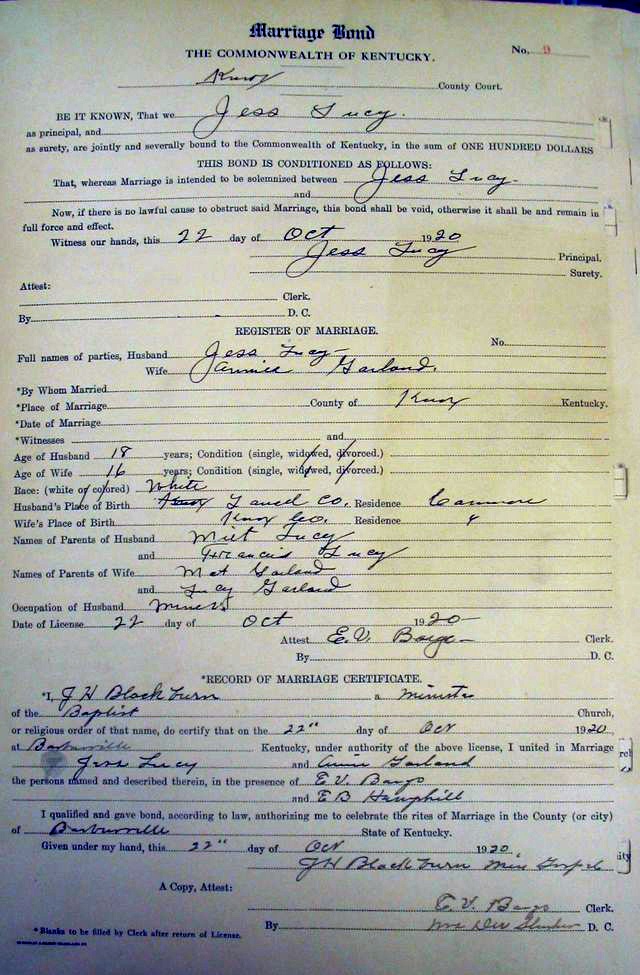 Marriage Bond
THE COMMONWEALTH OF KENTUCKY.
No. 9
Knox County Court.
BE IT KNOWN, That we Jess Lucy.
as principal, and
as surety, are jointly and severally bound to the Commonwealth of Kentucky, in the sum of ONE HUNDRED DOLLARS
THIS BOND IS CONDITIONED AS FOLLOWS:
That, whereas Marriage is intended to be solemnized between Jess Lucy
and
Now, if there is no lawful cause to obstruct said Marriage, this bond shall be void, otherwise it shall be and remain in
full force and effect.
Witness our hands, this 22 day of Oct 1920
Jess Lucy Principal.
Surety.
Attest:
Clerk.
By D. C.
REGISTER OF MARRIAGE.
No.
Full names of parties, Husband Jess Lucy
Wife Garland.
*By Whom Married
*Place of Marriage County of Knox Kentucky.
*Date of Marriage
*Witnesses and
Age of Husband 18 years; Condition (single, widowed, divorced.)
Age of Wife 16 years; Condition (single, widowed, divorced.)
Race: (white or colored) White
Husband's Place of Birth Knox Laurel Co. Residence
Wife's Place of Birth Knox Co. Residence
Names of Parents of Husband Lucy
and Francis Lucy
Names of Parents of Wife Mat Garland
and Lucy Garland
Occupation of Husband Miner
Date of License 22 day of Oct 1920
Attest E.V. Bargo Clerk.
By D. C.
*RECORD OF MARRIAGE CERTIFICATE.
*I, J H Blackburn a Minister
of the Baptist Church,
or religious order of that name, do certify that on the 22" day of Oct 1920,
at Barbourville Kentucky, under authority of the above license, I united in Marriage
Jess Lucy and Annie Garland
the persons named and described therein, in the presence of E V Bargo
and E B Hemphill
I qualified and gave bond, according to law, authorizing me to celebrate the rites of Marriage in the County (or city)
of Barbourville State of Kentucky.
Given under my hand, this 22" day of Oct 1920
J H Blackburn Min Gospel
A Copy, Attest:
E. V. Bargo Clerk.
By D. C.
*Blanks to be filled by Clerk after return of License.